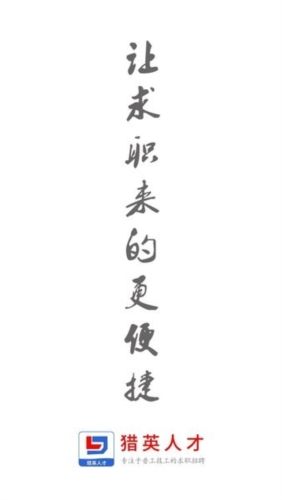 让求职来的更便捷
猎英人才
专注于普工技工的求职招聘
猎英人才